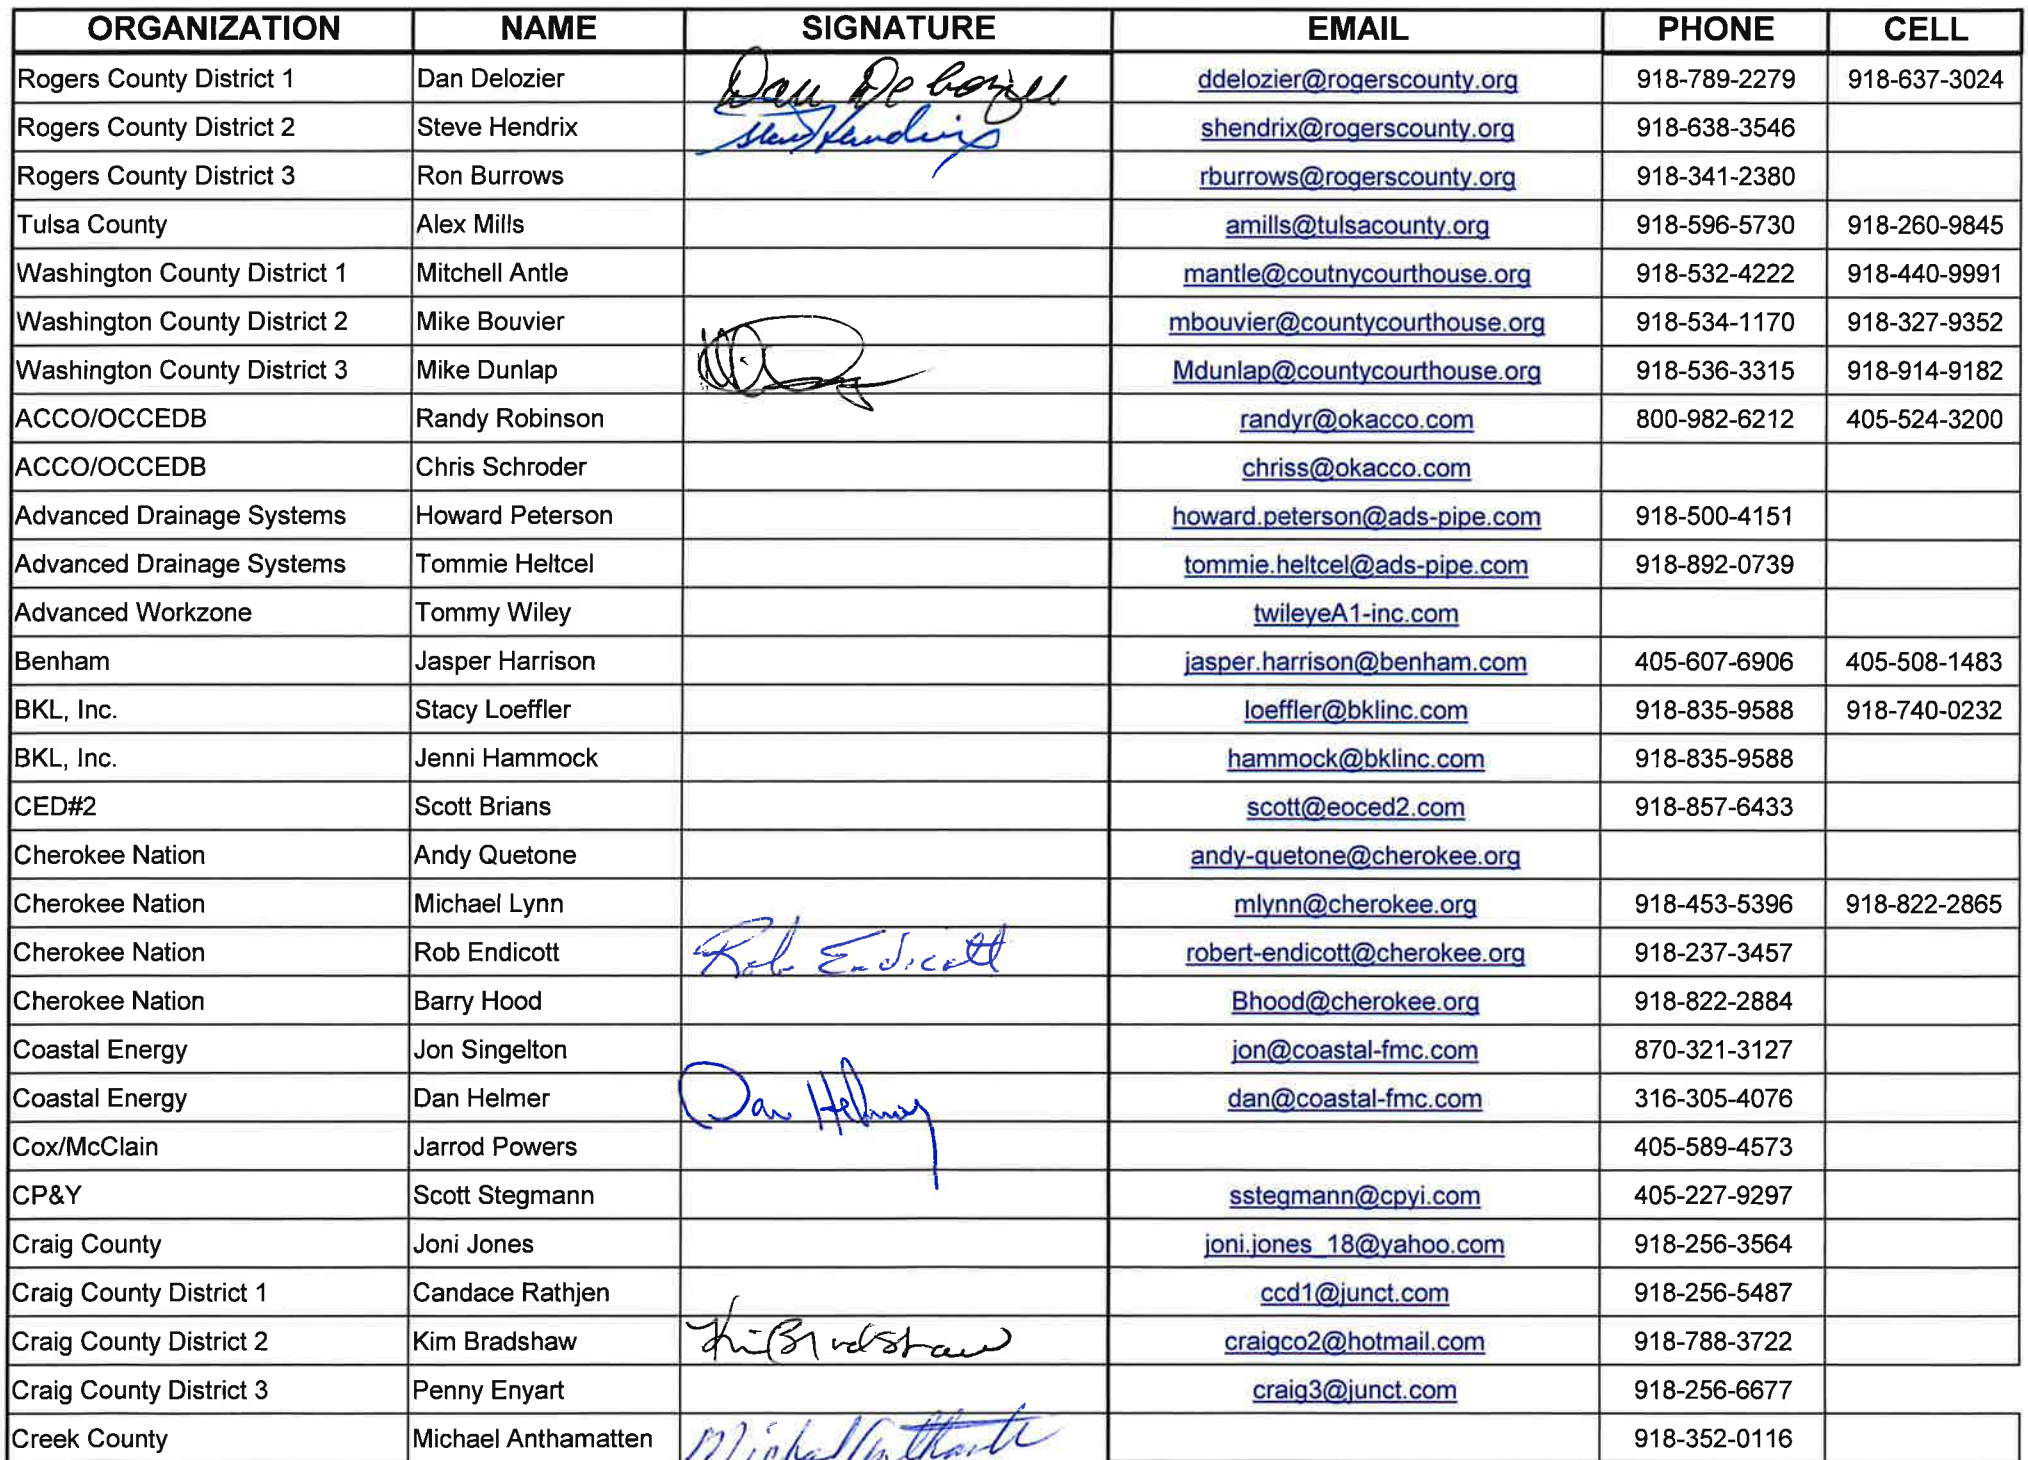 ORGANIZATION NAME SIGNATURE EMAIL PHONE CELL
Rogers County District 1 Dan Delozier Dan Delozier ddelozier@rogerscounty.org 918-789-2279 918-637-3024
Rogers County District 2 Steve Hendrix Steve Hendrix shendrix@rogerscounty.org 918-638-3546
Rogers County District 3 Ron Burrows rburrows@rogerscounty.org 918-341-2380
Tulsa County Alex Mills amills@tulsacounty.org 918-596-5730 918-260-9845
Washington County District 1 Mitchell Antle mantle@coutnycourthouse.org 918-532-4222 918-440-9991
Washington County District 2 Mike Bouvier mbouvier@countycourthouse.org 918-534-1170 918-327-9352
Washington County District 3 Mike Dunlap Mdunlap@countycourthouse.org 918-536-3315 918-914-9182
ACCO/OCCEDB Randy Robinson randyr@okacco.com 800-982-6212 405-524-3200
ACCO/OCCEDB Chris Schroder chriss@okacco.com
Advanced Drainage Systems Howard Peterson howard.peterson@ads-pipe.com 918-500-4151
Advanced Drainage Systems Tommie Heltcel tommie.heltcel@ads-pipe.com 918-892-0739
Advanced Workzone Tommy Wiley twileyeA1-inc.com
Benham Jasper Harrison jasper.harrison@benham.com 405-607-6906 405-508-1483
BKL, Inc. Stacy Loeffler loeffler@bklinc.com 918-835-9588 918-740-0232
BKL, Inc. Jenni Hammock hammock@bklinc.com 918-835-9588
CED#2 Scott Brians scott@eoced2.com 918-857-6433
Cherokee Nation Andy Quetone andy-quetone@cherokee.org
Cherokee Nation Michael Lynn mlynn@cherokee.org 918-453-5396 918-822-2865
Cherokee Nation Rob Endicott Rob Endicott robert-endicott@cherokee.org 918-237-3457
Cherokee Nation Barry Hood Bhood@cherokee.org 918-822-2884
Coastal Energy Jon Singelton jon@coastal-fmc.com 870-321-3127
Coastal Energy Dan Helmer Dan Helmer dan@coastal-fmc.com 316-305-4076
Cox/McClain Jarrod Powers 405-589-4573
CP&Y Scott Stegmann sstegmann@cpyi.com 405-227-9297
Craig County Joni Jones joni.jones_18@yahoo.com 918-256-3564
Craig County District 1 Candace Rathjen ccd1@junct.com 918-256-5487
Craig County District 2 Kim Bradshaw Kim Bradshaw craigco2@hotmail.com 918-788-3722
Craig County District 3 Penny Enyart craig3@junct.com 918-256-6677
Creek County Michael Anthamatten Michael Anthamatten 918-352-0116